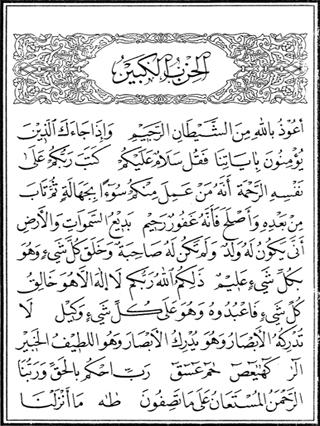 الحزب الكبير
أعوذ بالله من الشيطان الرجيم وإذا جاءك الذين
يؤمنون بآياتنا فقل سلام عليكم كتب ربكم على
نفسه الرحمة أنه من عمل منكم سوءا بجهالة ثم تاب
من بعده وأصلح فأنه غفور رحيم بديع السموات والأرض
أنى يكون له ولد ولم تكن له صاحبة وخلق كل شيء وهو
بكل شيء عليم ذلكم الله ربكم لا إله إلا هو خالق
كل شيء فاعبدوه وهو على كل شيء وكيل لا
تدركه الأبصار وهو يدرك الأبصار وهو اللطيف الخبير
الر كهيعص حم عسق رب احكم بالحق وربنا
الرحمن المستعان على ما تصفون طه ما أنزلنا